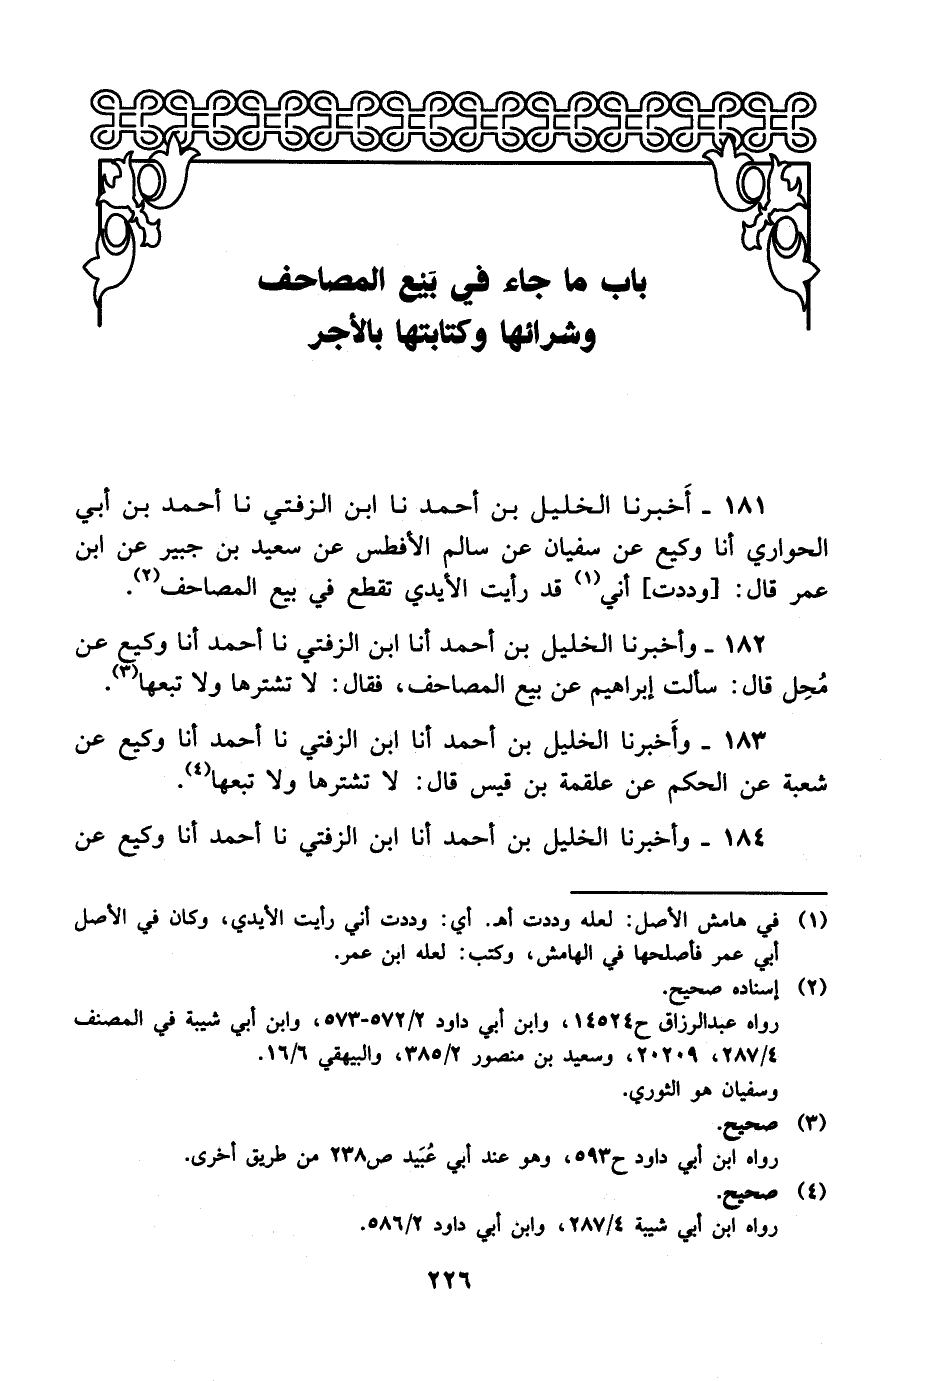 باب ما جاء في بَيْع المصاحف
وشرائها وكتابتها بالأجر
١٨١ ـ أَخبرنا الخليل بن أحمد نا ابن الزفتي نا أحمد بن أبي
الحواري أنا وكيع عن سفيان عن سالم الأفطس عن سعيد بن جبير عن ابن
عمر قال: [وددت] أني(١) قد رأيت الأيدي تقطع في بيع المصاحف(٢).
١٨٢ ـ وأخبرنا الخليل بن أحمد أنا ابن الزفتي نا أحمد أنا وكيع عن
مُحِل قال: سألت إبراهيم عن بيع المصاحف، فقال: لا تشترها ولا تبعها(٣).
١٨٣ ـ وأَخبرنا الخليل بن أحمد أنا ابن الزفتي نا أحمد أنا وكيع عن
شعبة عن الحكم عن علقمة بن قيس قال: لا تشترها ولا تبعها(٤).
١٨٤ ـ وأخبرنا الخليل بن أحمد أنا ابن الزفتي نا أحمد أنا وكيع عن
(١) في هامش الأصل: لعله وددت أهـ. أي: وددت أني رأيت الأيدي، وكان في الأصل
أبي عمر فأصلحها في الهامش، وكتب: لعله ابن عمر.
(٢) إسناده صحيح.
رواه عبدالرزاق ح١٤٥٢٤، وابن أبي داود ٥٧٢/٢-٥٧٣، وابن أبي شيبة في المصنف
٢٨٧/٤، ٢٠٢٠٩، وسعيد بن منصور ٣٨٥/٢، والبيهقي ١٦/٦.
وسفيان هو الثوري.
(٣) صحيح.
رواه ابن أبي داود ح٥٩٣، وهو عند أبي عُبَيد ص٢٣٨ من طريق أخرى.
(٤) صحيح.
رواه ابن أبي شيبة ٢٨٧/٤، وابن أبي داود ٥٨٦/٢.
٢٢٦